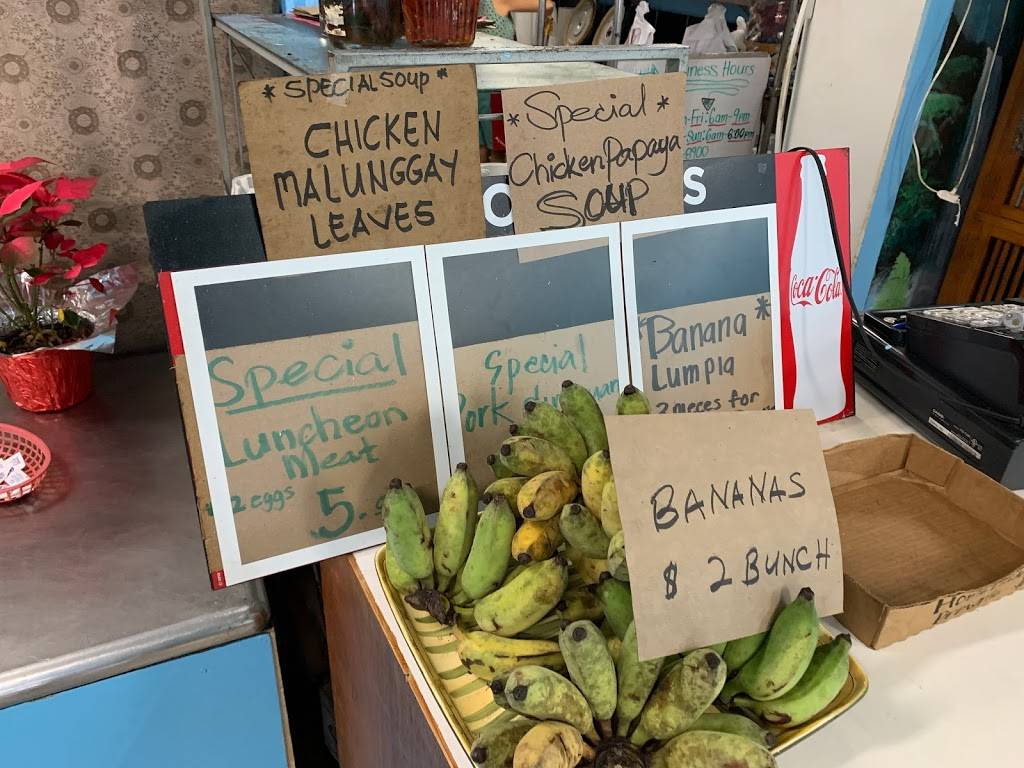 * SPECIAL SOUP *
CHICKEN
MALUNGGAY
LEAVES
* Special *
Chicken Papaya
SOUP
iness Hours
-Fri: 6am-9pm
-Sun: 6am-6:00pm
8900
O
S
Coca-Cola
Special
Luncheon
Meat
2 eggs 5.
Special
Pork
Banana *
Lumpia
2 pieces for
BANANAS
$ 2 BUNCH